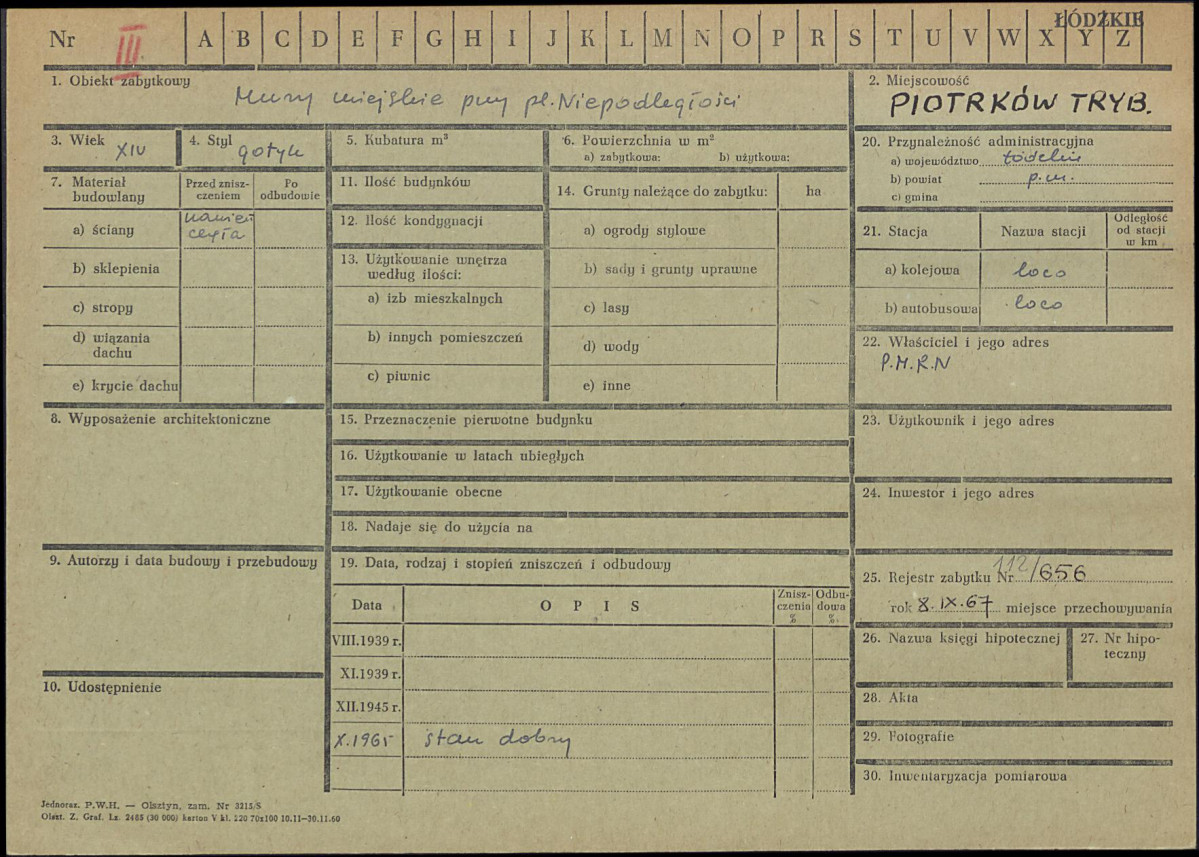 ŁÓDZKIE
Nr III A B C D E F G H I J K L M N O P R S T U V W X Y Z
1. Obiekt zabytkowy
Mury miejskie przy pl. Niepodległości
2. Miejscowość
PIOTRKÓW TRYB.
3. Wiek XIV
4. Styl gotyk
5. Kubatura m³
6. Powierzchnia w m²
a) zabytkowa: b) użytkowa:
7. Materiał budowlany
Przed zniszczeniem
Po odbudowie
a) ściany kamień
cegła
b) sklepienia
c) stropy
d) wiązania
dachu
e) krycie dachu
8. Wyposażenie architektoniczne
9. Autorzy i data budowy i przebudowy
10. Udostępnienie
11. Ilość budynków
12. Ilość kondygnacji
13. Użytkowanie wnętrza
według ilości:
a) izb mieszkalnych
b) innych pomieszczeń
c) piwnic
14. Grunty należące do zabytku: ha
a) ogrody stylowe
b) sady i grunty uprawne
c) lasy
d) wody
e) inne
15. Przeznaczenie pierwotne budynku
16. Użytkowanie w latach ubiegłych
17. Użytkowanie obecne
18. Nadaje się do użycia na
19. Data, rodzaj i stopień zniszczeń i odbudowy
Data O P I S Zniszczenia % Odbudowa %
VIII.1939 r.
XI.1939 r.
XII.1945 r.
X.1965 stan dobry
20. Przynależność administracyjna
a) województwo łódzkie
b) powiat p.m.
c) gmina
21. Stacja Nazwa stacji Odległość od stacji w km
a) kolejowa loco
b) autobusowa loco
22. Właściciel i jego adres
P.M.R.N
23. Użytkownik i jego adres
24. Inwestor i jego adres
25. Rejestr zabytku Nr 112/656
rok 8.IX.67 miejsce przechowywania
26. Nazwa księgi hipotecznej
27. Nr hipoteczny
28. Akta
29. Fotografie
30. Inwentaryzacja pomiarowa
Jednoraz. P.W.H. — Olsztyn, zam. Nr 3215/S
Olszt. Z. Graf. Lz. 2485 (30 000) karton V kl. 220 70x100 10.11—30.11.60